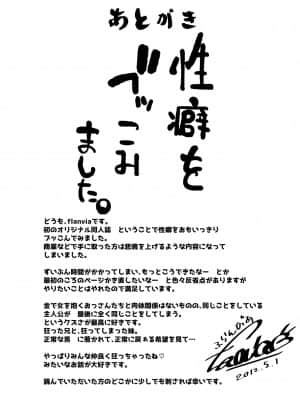 あとがき
性癖を
ブッこみ
ました。
どうも、flanviaです。
初のオリジナル同人誌　ということで性癖をおもいっきり
ブッこんでみました。
商業などで手に取った方は悲鳴を上げるような内容になって
しまいました。
ずいぶん時間がかかってしまい、もっとこうできたなー　とか
最初のころのページかき直したいなー　と色々反省点がありますが
やりたいことはやれたので満足しています。
金で女を抱くおっさんたちと肉体関係はないものの、同じことをしている
主人公が　最後に全く同じことをしてしまう。
というクズさが最高に好きです。
狂った兄と、狂ってしまった妹。
正常な男　に惹かれて、正常に戻れる希望を見て…
やっぱりみんな仲良く狂っちゃったね♡
みたいなお話が大好きです。
読んでいただいた方のどこかに少しでも刺されば幸いです。
ふらんびあ
5.1